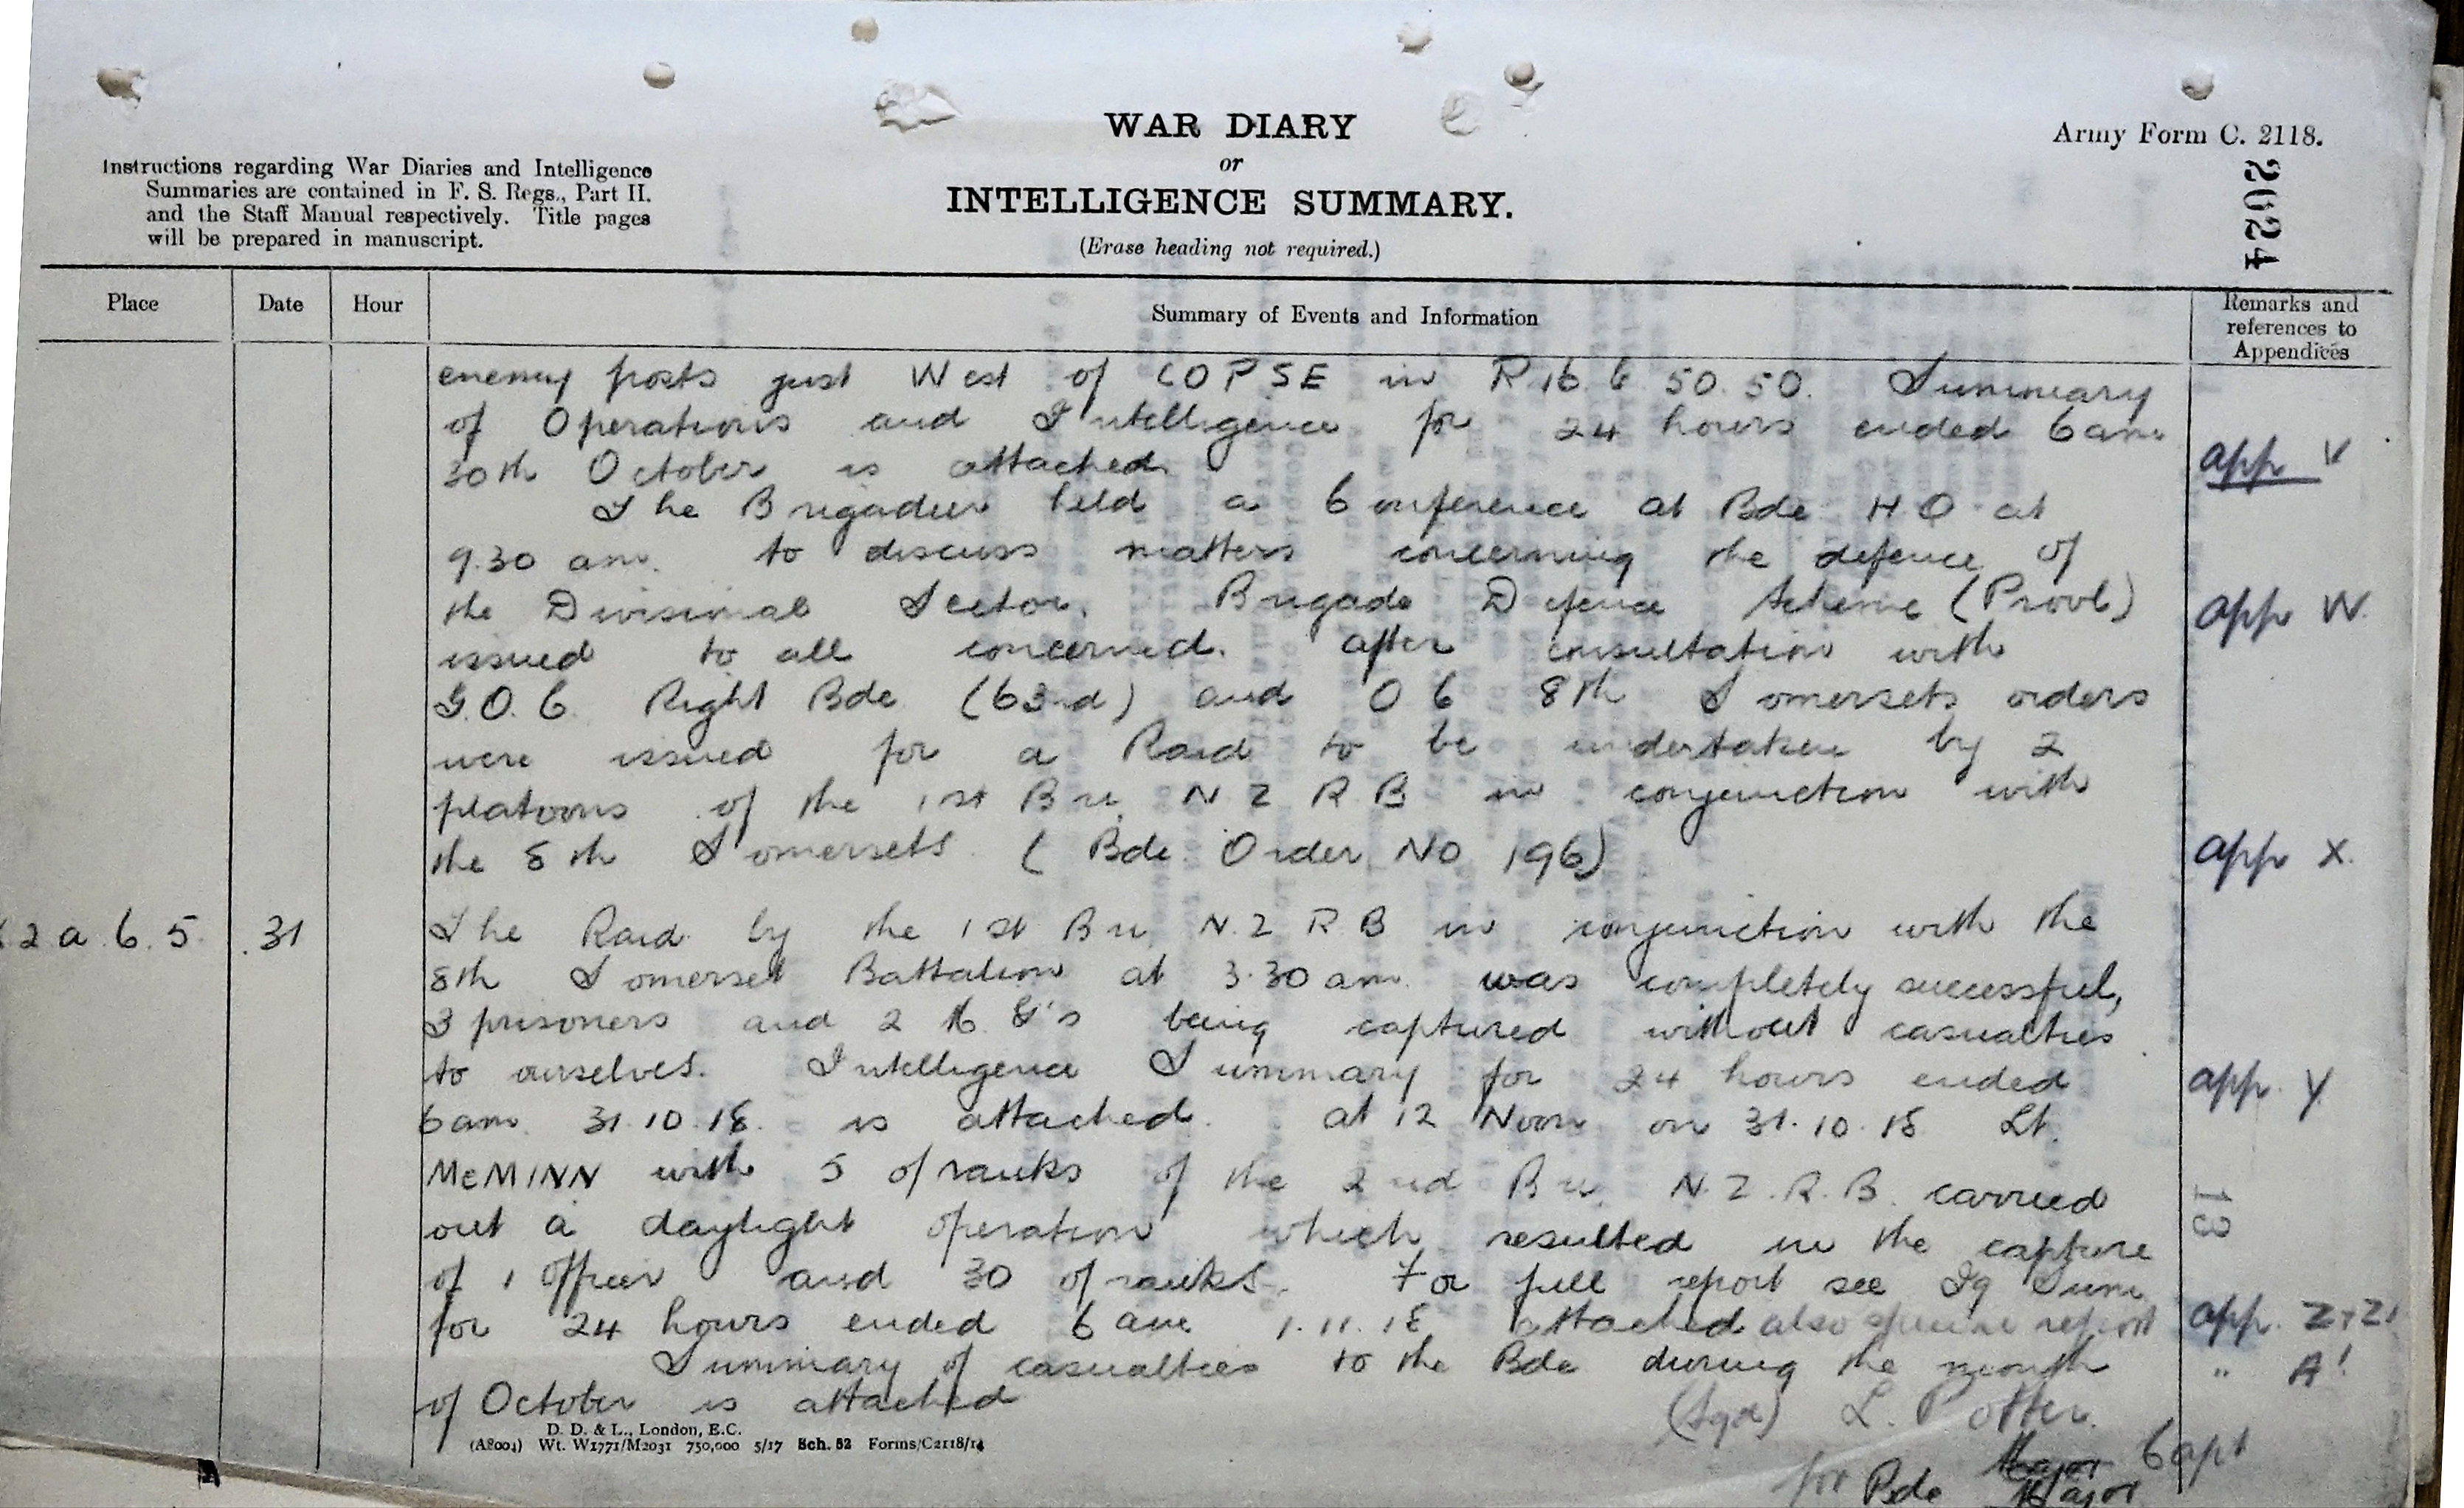 WAR DIARY
or
INTELLIGENCE SUMMARY.
(Erase heading not required.)
Army Form C. 2118.
2024
Instructions regarding War Diaries and Intelligence
Summaries are contained in F. S. Regs., Part II.
and the Staff Manual respectively. Title pages
will be prepared in manuscript.
Place
Date
Hour
Summary of Events and Information
Remarks and
references to
Appendices
enemy posts just West of COPSE in R.16. 50.50. Summary
of Operations and Intelligence for 24 hours ended 6 am
30th October is attached. app V
The Brigadier held a Conference at Bde HQ at
9.30 am. to discuss matters concerning the defence of
the Divisional Sector. Brigade Defence Scheme (Provl) app W.
issued to all concerned. After consultation with
G.O.C. Right Bde (63rd) and O C 8th Somersets orders
were issued for a Raid to be undertaken by 2
platoons of the 1st Bn. N Z R B in conjunction with
the 8th Somersets (Bde Order No 196) app X.
2 a 6.5. 31 The Raid by the 1st Bn N.Z R B in conjunction with the
8th Somerset Battalion at 3.30 am. was completely successful,
3 prisoners and 2 M.G's being captured without casualties
to ourselves. Intelligence Summary for 24 hours ended app. Y
6 am. 31.10.18. is attached. At 12 Noon on 31.10.18 Lt.
McMINN with 5 o/ranks of the 2nd Bn. N.Z.R.B. carried
out a daylight operation which resulted in the capture
of 1 Officer and 30 o/ranks. For full report see Ig Sum
for 24 hours ended 6 am 1.11.18 attached also special report app. Z+Z1
Summary of casualties to the Bde during the month " A'
of October is attached
(Sgd) L. Potter.
Capt
for Bde Major
13
D. D. & L., London, E.C.
(A8004) Wt. W1771/M2031 750,000 5/17 Sch. 52 Forms/C2118/14